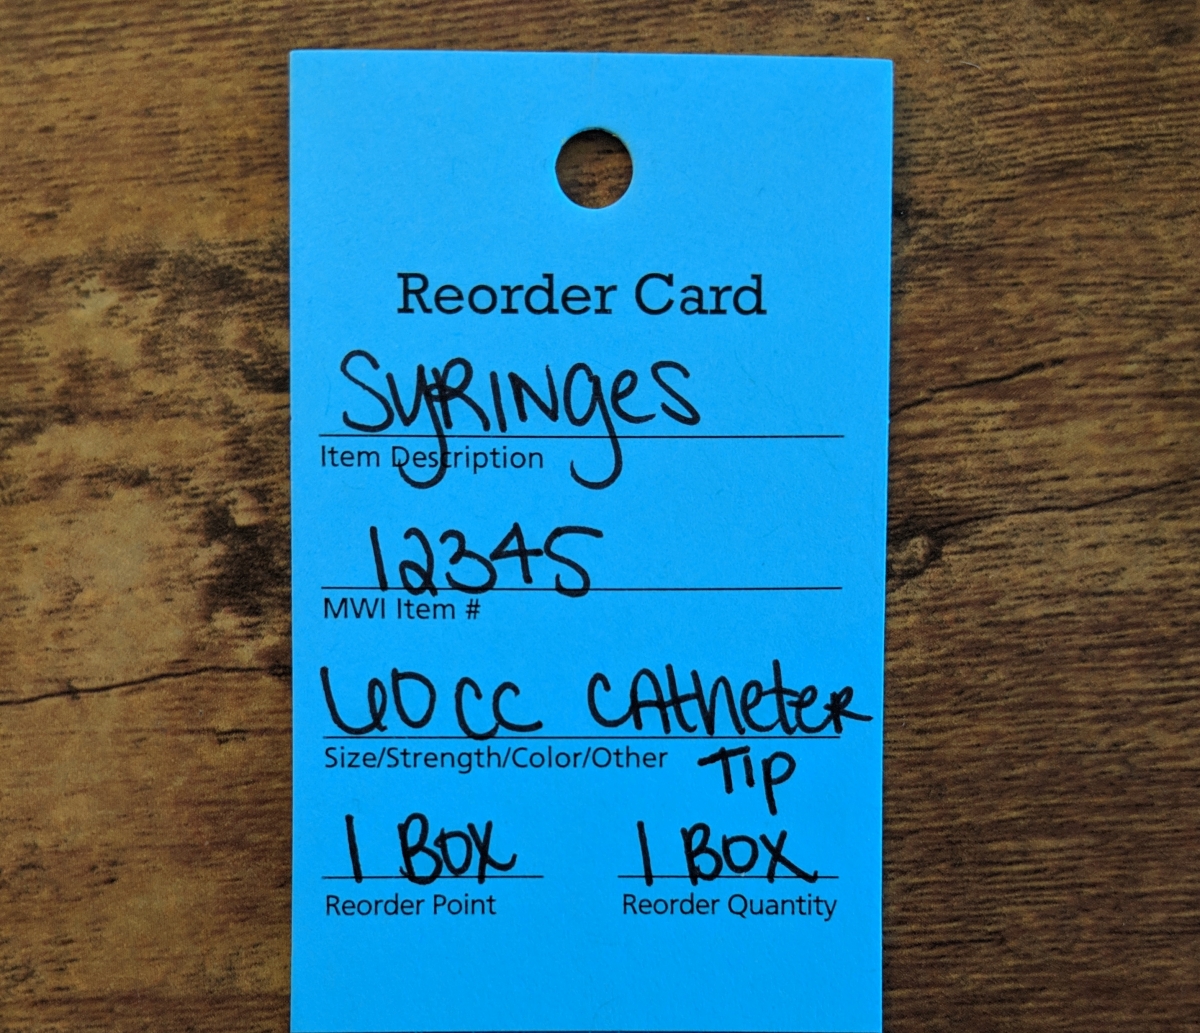 Reorder Card
Syringes
Item Description
12345
MWI Item #
60cc Catheter
Size/Strength/Color/Other
Tip
1 Box 1 Box
Reorder Point Reorder Quantity